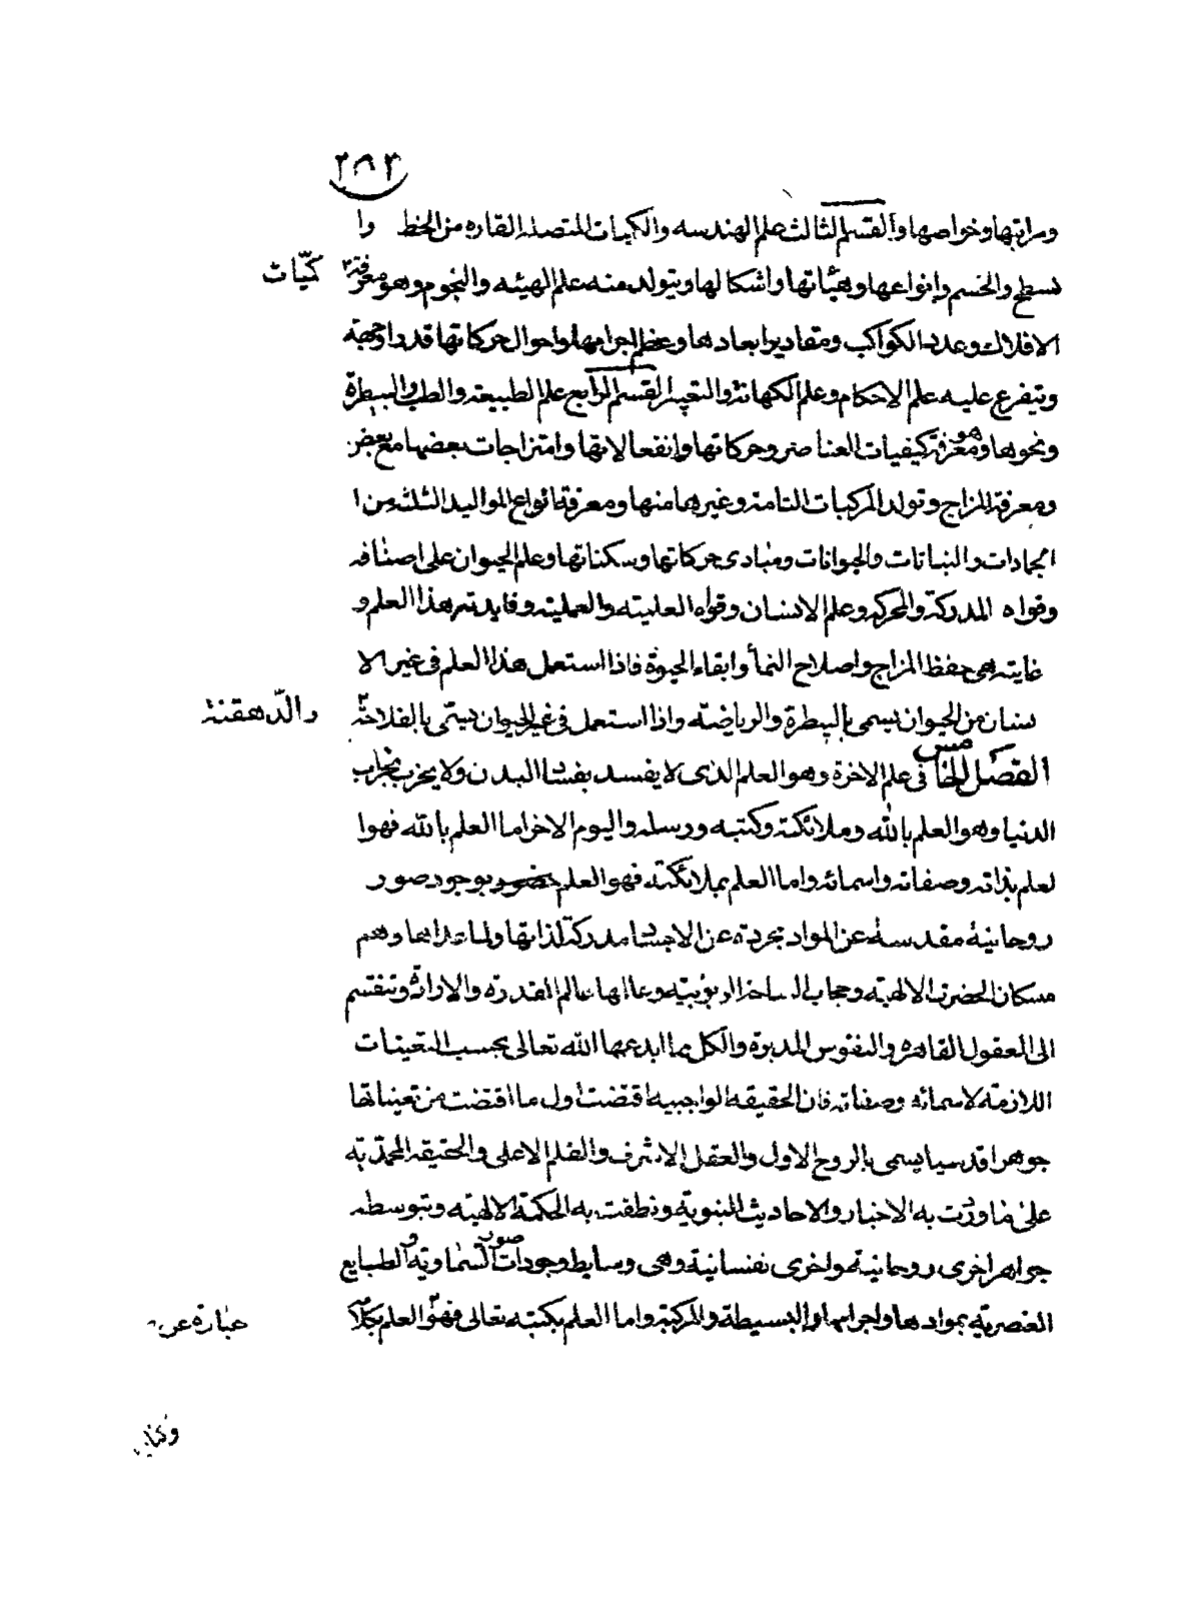 ٢٨٣
ومراتبها وخواصها والقسم الثالث علم الهندسه والكميات المتصله القاره من الخط وا
لسطح والجسم وانواعها وهيئاتها واشكالها ويتولد منه علم الهيئه والنجوم وهو معرفة
كمّيّات
الافلاك وعدد الكواكب ومقادير ابعادها وعظم اجرامها واحوال حركاتها قدرا وجهة
ويتفرع عليه علم الاحكام وعلم الكهانة والتعبير القسم الرابع علم الطبيعه والطب والبيطرة
ونحوها وهو معرفة كيفيات العناصر وحركاتها وانفعالاتها وامتزاجات بعضها مع بعض
ومعرفة المزاج وتولد المركبات التامة وغيرها منها ومعرفة انواع المواليد الثلثة من ا
لجمادات والنباتات والحيوانات ومبادى حركاتها وسكناتها وعلم الحيوان على اصنافه
وقواه المدركة والمحركه وعلم الانسان وقواه العلميته والعمليته وفايدته هذا العلم و
غايته هى حفظ المزاج واصلاح النمأ وابقاء الحيوة فاذا استعمل هذا العلم فى غير الا
نسان من الحيوان يسمى بالبيطرة والرياضته واذا استعمل فى غير الحيوان يسمّى بالفلاحة
والدّهقنة
الفصل الخامس فى علم الاخرة وهو العلم الذى لا يفسد بفساد البدن ولا يخرب بخراب
الدنيا وهو العلم بالله وملائكته وكتبه ورسله واليوم الاخر اما العلم بالله فهو ا
لعلم بذاته وصفاته واسمائه واما العلم بملائكته فهو العلم بوجود صور
روحانية مقدسة عن المواد مجردة عن الاجساد مدركة لذاتها ولما عداها وهم
سكان الحضرت الالهيته وحجاب الساحة الربوبيّة وعالمها عالم القدرة والارادة وتنقسم
الى العقول القاهره والنفوس المدبرة والكل مما ابدعها الله تعالى بحسب التعينات
اللازمة لاسمائه وصفاته فان الحقيقه الواجبيه اقتضت اول ما اقتضت من تعيناتها
جوهرا قدسيا يسمى بالروح الاول والعقل الاشرف والقلم الاعلى والحقيقه المحمّديّه
على ما وردت به الاخبار والاحاديث النبوية ونطقت به الحكمة الالهيته وبتوسطه
جواهر اخرى روحانية واخرى نفسانية وهى وسايط وجودات صور السّماوية والطبايع
العنصرية بموادها واجرامها والبسيطة والمركبة واما العلم بكتبه تعالى فهو العلم بكلا
عبارة عن
وكتاب